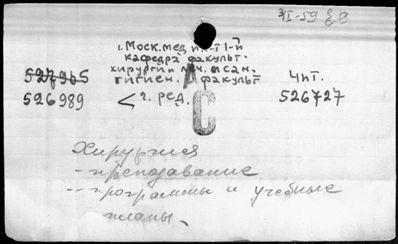 3/I-59
1. Моск. мед. ин-т 1-й
кафедра факульт.
хирургии леч. и сан.
527965 гигиен. факульт Чит.
526989 < 2. ред. 526727
АС
Хирургия
- преподавание
-- программы и учебные
планы.